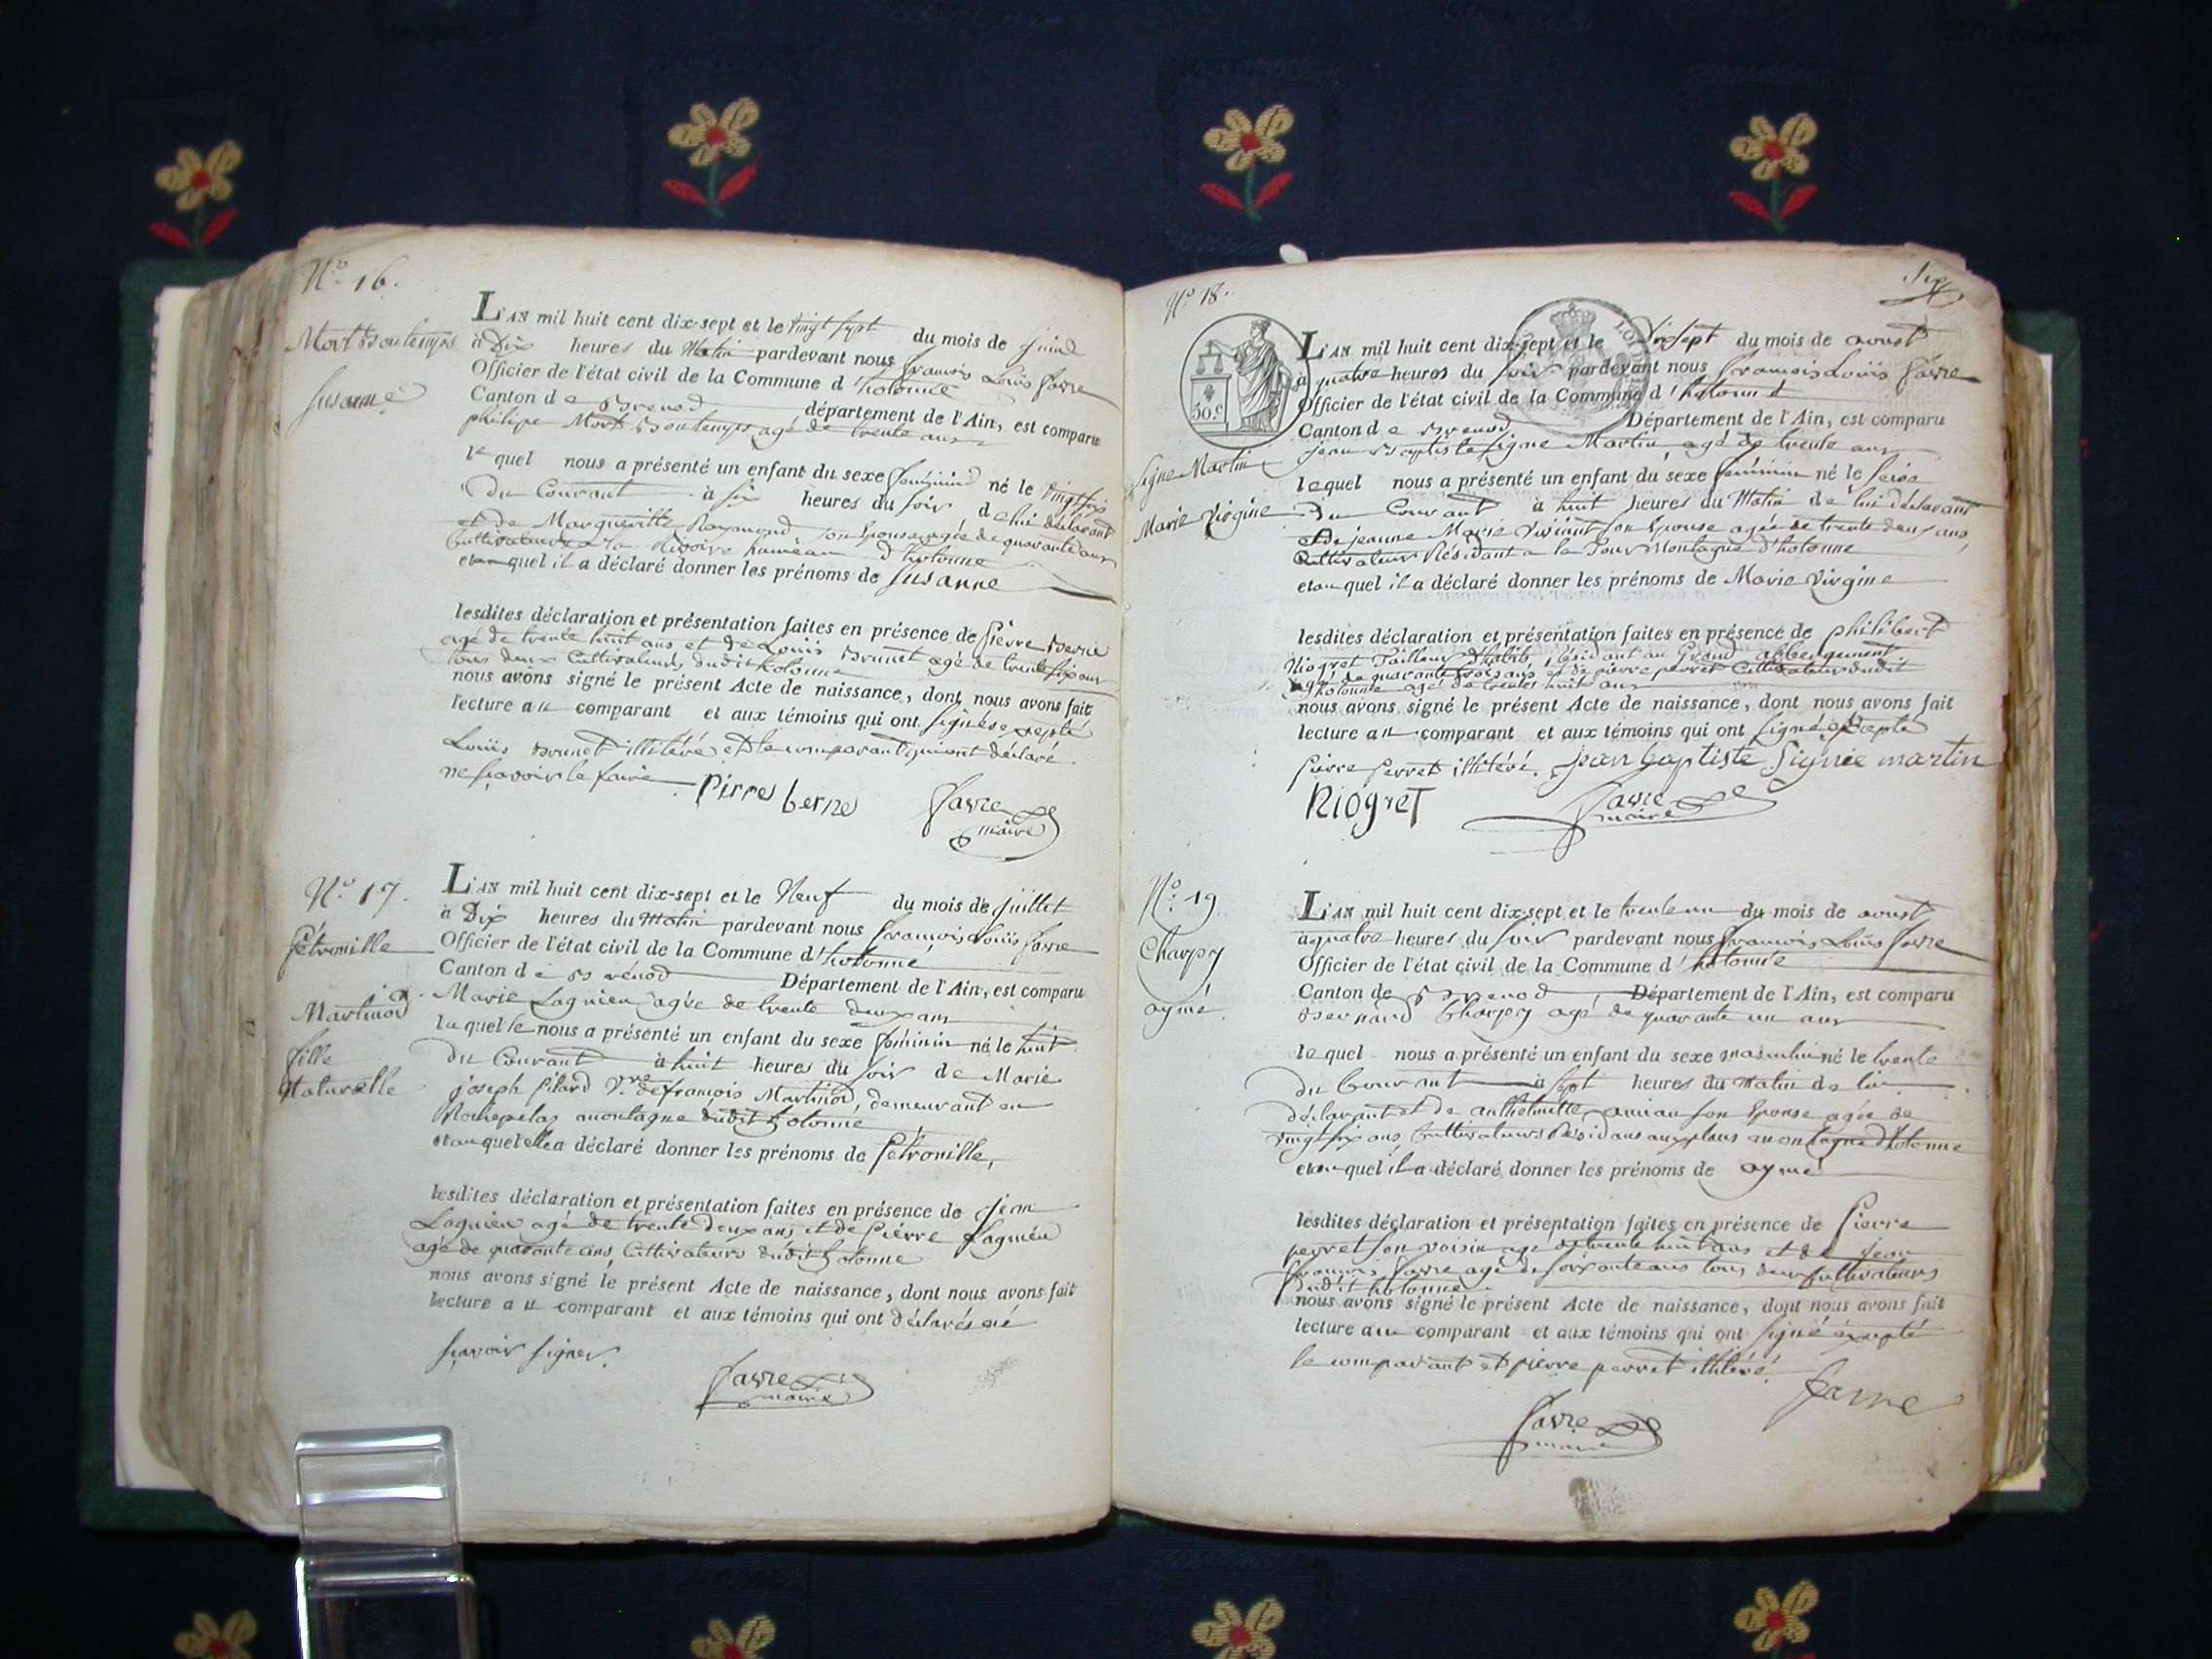 N.o 16.
Mort Bontemps
Susanne
L'AN mil huit cent dix-sept et le vingt sept du mois de juin
à Dix heures du Matin pardevant nous françois Louis favre
Officier de l'état civil de la Commune d'hotonne
Canton de Brenod département de l'Ain, est comparu
philipe Mort Bontemps agé de trente ans
lequel nous a présenté un enfant du sexe féminin né le vingt six
du Courant à six heures du soir de lui déclarant
et de Margueritte Raymond son Epouse agée de quarante ans
Cultivateurs a la Rivoire hameau d'hotonne
et auquel il a déclaré donner les prénoms de Susanne
lesdites déclaration et présentation faites en présence de Pierre Berne
agé de trente huit ans et de Louis Brunet agé de trente six ans
tous deux Cultivateurs dudit hotonne
nous avons signé le présent Acte de naissance, dont nous avons fait
lecture au comparant et aux témoins qui ont signés excepté
Louis Brunet illitéré et le comparant qui ont déclaré
ne sçavoir le faire Pirre berne favre
maire
N.o 17.
Pétronille
Martinod
fille
Naturelle
L'AN mil huit cent dix-sept et le Neuf du mois de juillet
à Dix heures du Matin pardevant nous françois Louis favre
Officier de l'état civil de la Commune d'hotonne
Canton de Brénod Département de l'Ain, est comparu
Marie Lagnieu agée de trente deux ans
laquelle nous a présenté un enfant du sexe féminin né le huit
du Courant à huit heures du soir de Marie
joseph Pilard V.ve de françois Martinod, demeurant en
montagne dudit hotonne
et auquel elle a déclaré donner les prénoms de Pétronille,
lesdites déclaration et présentation faites en présence de jean
Lagnieu agé de trente deux ans et de Pierre Lagnieu
agé de quarante ans, Cultivateurs dudit hotonne
nous avons signé le présent Acte de naissance, dont nous avons fait
lecture au comparant et aux témoins qui ont déclarés ne
sçavoir signer.
favre
maire
Six
N.o 18.
50.c
Signe Martin
Marie Virgine
L'AN mil huit cent dix-sept et le Dixsept du mois de aoust
à quatre heures du soir pardevant nous françois Louis favre
Officier de l'état civil de la Commune d'hotonne
Canton de Brenod Département de l'Ain, est comparu
jean Baptiste Signe Martin agé de trente ans
lequel nous a présenté un enfant du sexe féminin né le seize
du Courant à huit heures du Matin de lui déclarant
et de jeanne Marie Son Epouse agée de trente deux ans,
Cultivateurs Résidant a la Montagne d'hotonne
et auquel il a déclaré donner les prénoms de Marie Virgine
lesdites déclaration et présentation faites en présence de philibert
Niogret Tailleur d'habits, résidant au Grand abbergement
agé de quarante trois ans, et de pierre perret Cultivateur dudit
hotonne agé de trente huit ans
nous avons signé le présent Acte de naissance, dont nous avons fait
lecture au comparant et aux témoins qui ont signé excepté
pierre perret illitéré. jean baptiste Signie martin
Niogret favre
maire
N.o 19
Charpy
aymé.
L'AN mil huit cent dix-sept et le trente un du mois de aoust
à quatre heures du soir pardevant nous françois Louis favre
Officier de l'état civil de la Commune d'hotonne
Canton de Brenod Département de l'Ain, est comparu
Bernard Charpy agé de quarante un ans
lequel nous a présenté un enfant du sexe masculin né le trente
du Courant à sept heures du Matin de lui
déclarant et de anthelmette son Epouse agée de
vingt six ans, Cultivateurs Résidans aux plans montagne d'hotonne
et auquel il a déclaré donner les prénoms de aymé
lesdites déclaration et présentation faites en présence de Pierre
perret son voisin agé de trente huit ans et de jean
françois favre agé de soixante ans tous deux Cultivateurs
dudit hotonne.
nous avons signé le présent Acte de naissance, dont nous avons fait
lecture au comparant et aux témoins qui ont signé excepté
le comparant et pierre perret illitéré.
favre
favre
maire